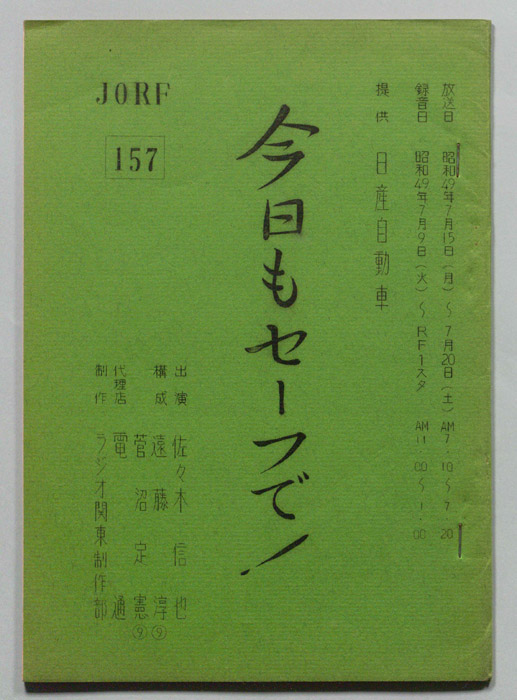 放送日 昭和49年7月15日(月)～7月20日(土) AM7:10～7:20
録音日 昭和49年7月9日(火)～RF1スタ AM11:00～1:00
提供 日産自動車
今日もセーフで!
JORF
157
出演 佐々木信也
構成 遠藤淳⑨
菅沼定憲⑨
代理店 電通
制作 ラジオ関東制作部